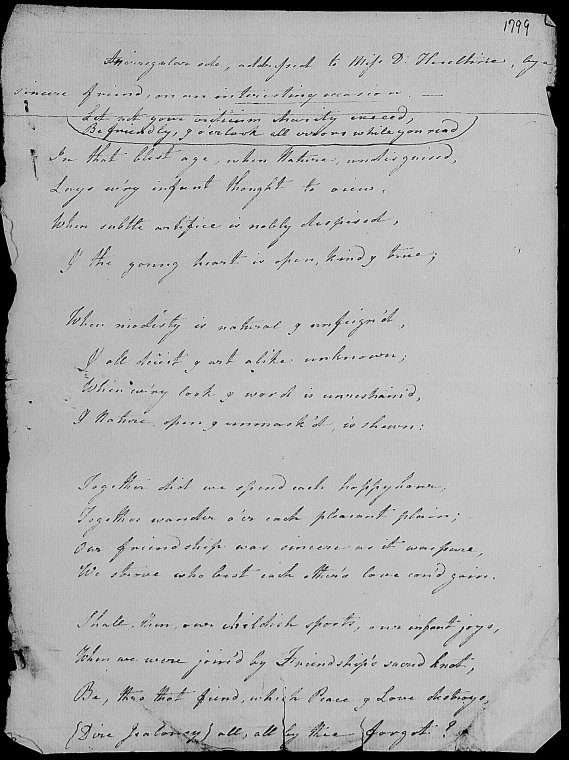 1799
An irregular ode, addressed to Miss D. Heseltine, by a
sincere friend, on an interesting occasion. —
Let not your criticism charity exceed,
Be friendly, & o'erlook all errors while you read
In that blest age, when Nature, undisguised,
Lays ev'ry infant thought to view,
When subtle artifice is nobly despised,
& the young heart is open, kind & true;
When modesty is natural & unfeign'd,
& all deceit & art alike unknown;
When ev'ry look & word is unrestrain'd,
& Nature, open & unmask'd, is shewn:
Together did we spend each happy hour,
Together wander o'er each pleasant plain;
Our friendship was sincere as it was pure,
We strove who best each other's love cou'd gain.
Shall, then, our childish sports, our infant joys,
When we were join'd by Friendship's sacred knot,
Be, thro that fiend, which Peace & Love destroys,
(Dire Jealousy) all, all by thee forgot?